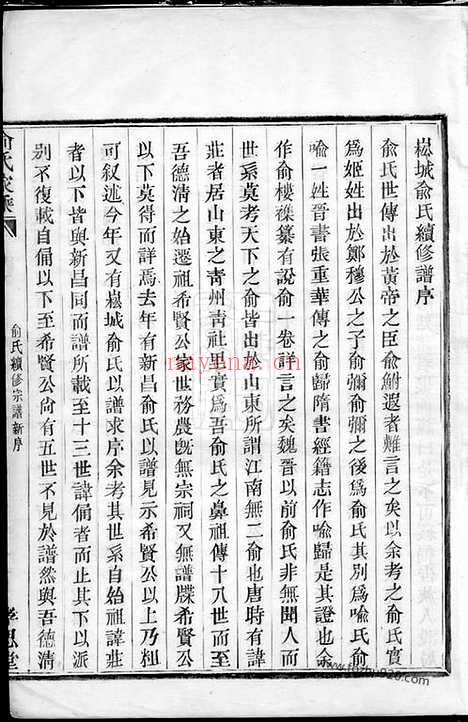 崧城俞氏續修譜序
俞氏世傳出於黃帝之臣俞跗遐者難言之矣以余考之俞氏實
為姬姓出於鄭穆公之子俞彌俞彌之後為俞氏其別為喻氏俞
喻一姓晉書張重華傳之俞歸隋書經籍志作喻歸是其證也余
作俞樓襍纂有說俞一卷詳言之矣魏晉以前俞氏非無聞人而
世系莫考天下之俞皆出於山東所謂江南無二俞也唐時有諱
莊者居山東之靑州靑社里實爲吾俞氏之鼻祖傳十八世而至
吾德清之始遷祖希賢公家世務農旣無宗祠又無譜牒希賢公
以下莫得而詳焉去年有新昌俞氏以譜見示希賢公以上乃粗
可叙述今年又有崧城俞氏以譜求序余考其世系自始祖諱莊
者以下皆與新昌同而譜所載至十三世諱俻者而止其下以派
別不復載自俻以下至希賢公尙有五世不見於譜然與吾德淸
俞氏家乘
俞氏續修宗譜新序
孝思堂
nayena.com
www.fozhu920.com